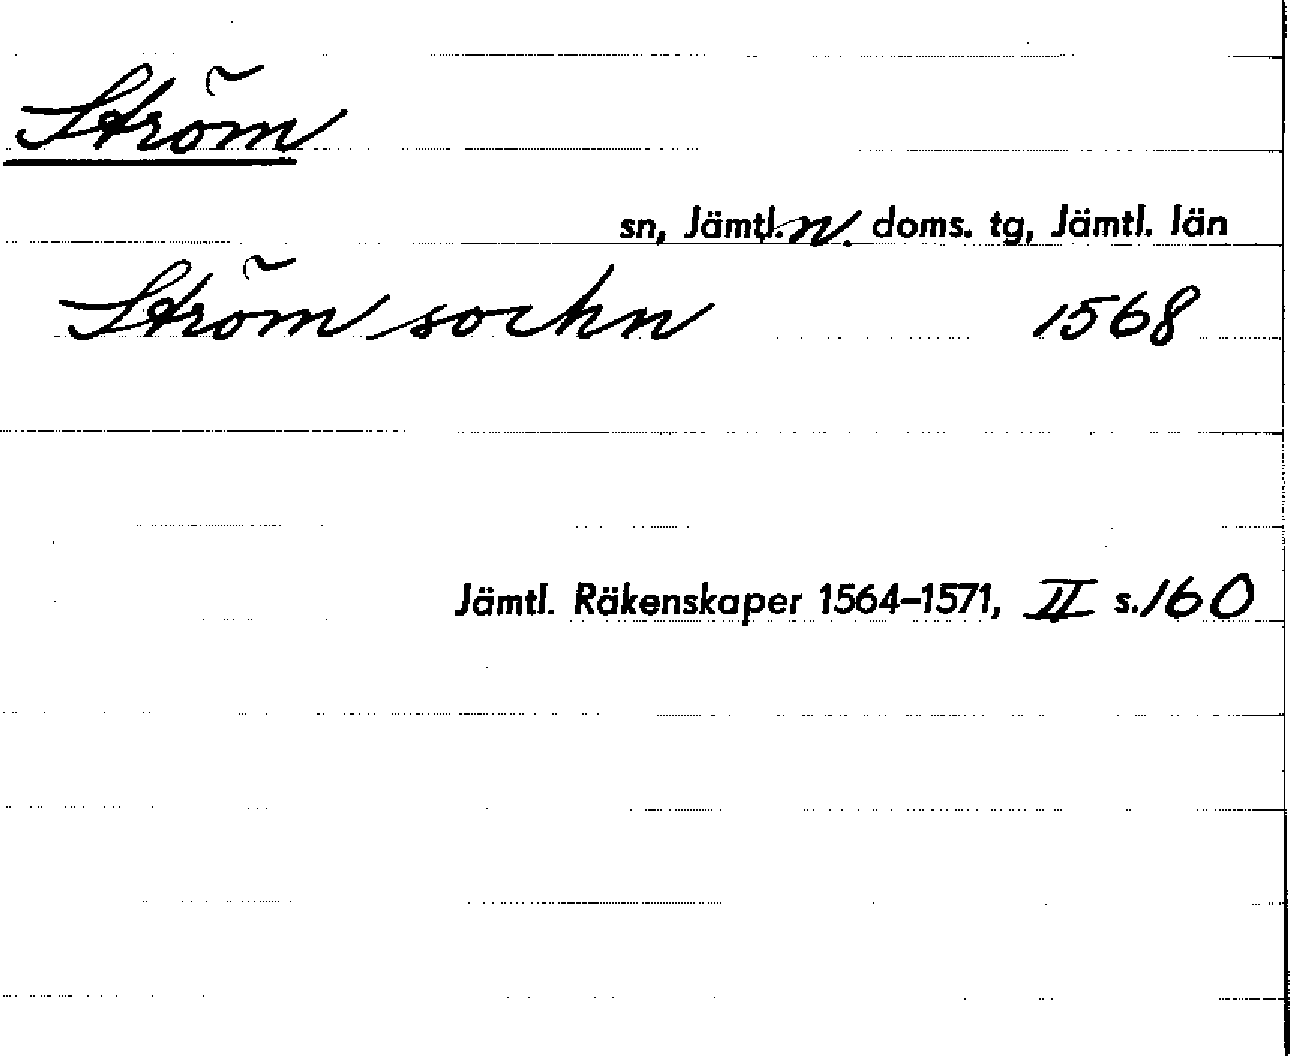 Ström
sn, Jämtl. n. doms. tg, Jämtl. län
Ström sockn 1568
Jämtl. Räkenskaper 1564–1571, II s. 160